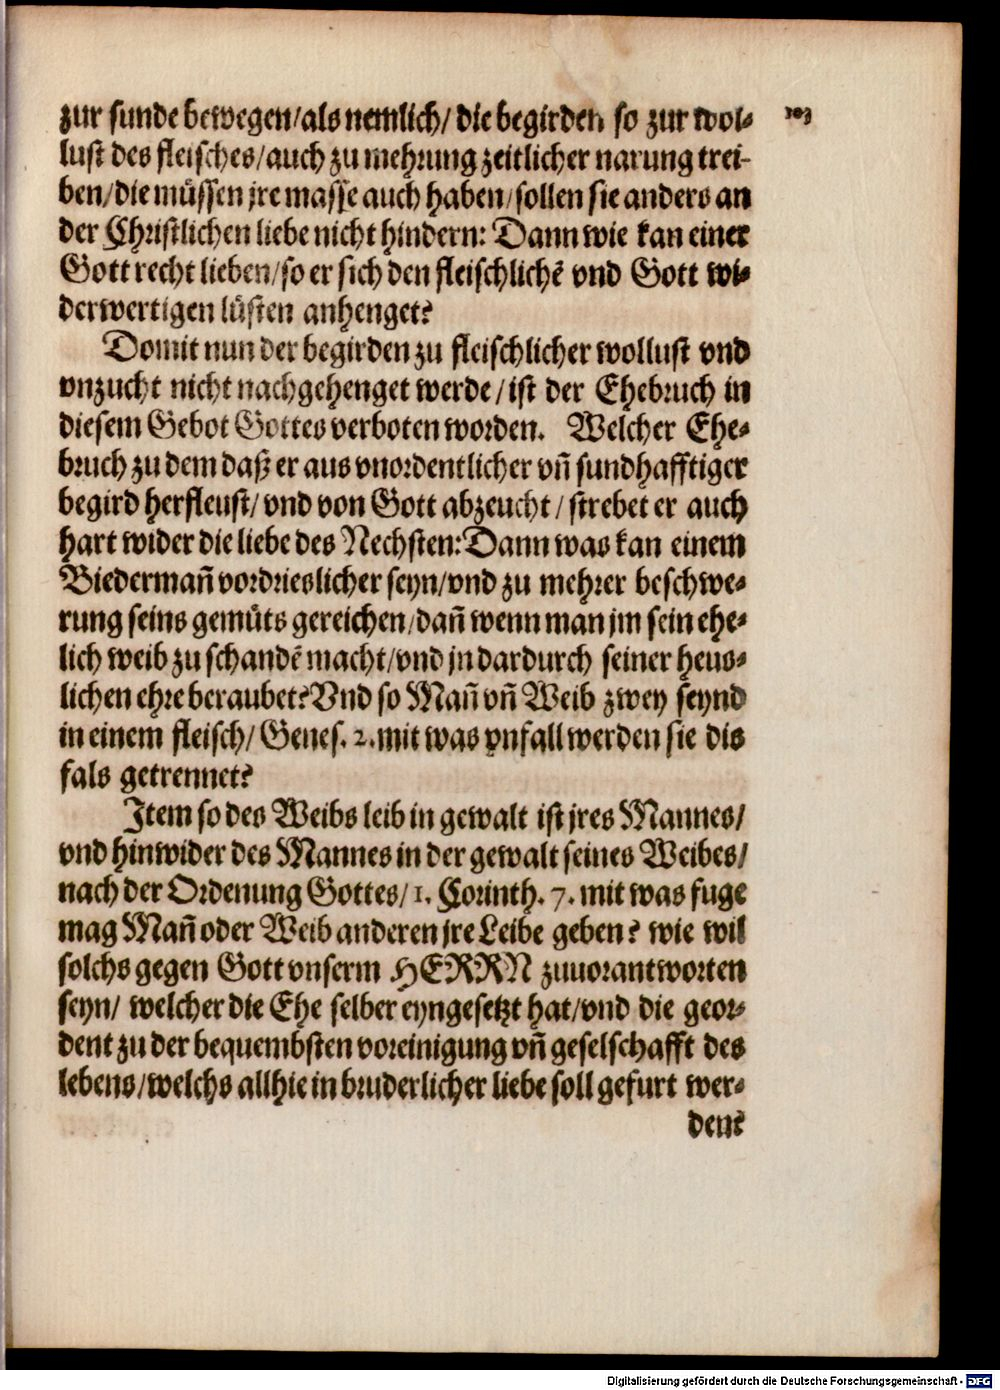 zur sunde bewegen/als nemlich/ die begirden so zur wol-
lust des fleisches/auch zu mehrung zeitlicher narung trei-
ben/die müssen jre masse auch haben/sollen sie anders an
der Christlichen liebe nicht hindern: Dann wie kan einer
Gott recht lieben/so er sich den fleischlichē vnd Gott wi-
derwertigen lüsten anhenget?
Domit nun der begirden zu fleischlicher wollust vnd
vnzucht nicht nachgehenget werde/ist der Ehebruch in
diesem Gebot Gottes verboten worden. Welcher Ehe-
bruch zu dem daß er aus vnordentlicher vn̄ sundhafftiger
begird herfleust/ vnd von Gott abzeucht/ strebet er auch
hart wider die liebe des Nechsten: Dann was kan einem
Biederman̄ vordrieslicher seyn/vnd zu mehrer beschwe-
rung seins gemüts gereichen/dan̄ wenn man jm sein ehe-
lich weib zu schandē macht/vnd jn dardurch seiner heus-
lichen ehre beraubet? Vnd so Man̄ vn̄ Weib zwey seynd
in einem fleisch/ Genes. 2. mit was vnfall werden sie dis
fals getrennet?
Item so des Weibs leib in gewalt ist jres Mannes/
vnd hinwider des Mannes in der gewalt seines Weibes/
nach der Ordenung Gottes/ 1. Corinth. 7. mit was fuge
mag Man̄ oder Weib anderen jre Leibe geben? wie wil
solchs gegen Gott vnserm HERRN zuuorantworten
seyn/ welcher die Ehe selber eyngesetzt hat/vnd die geor-
dent zu der bequembsten voreinigung vn̄ geselschafft des
lebens/welchs allhie in bruderlicher liebe soll gefurt wer-
den?
Digitalisierung gefördert durch die Deutsche Forschungsgemeinschaft - DFG